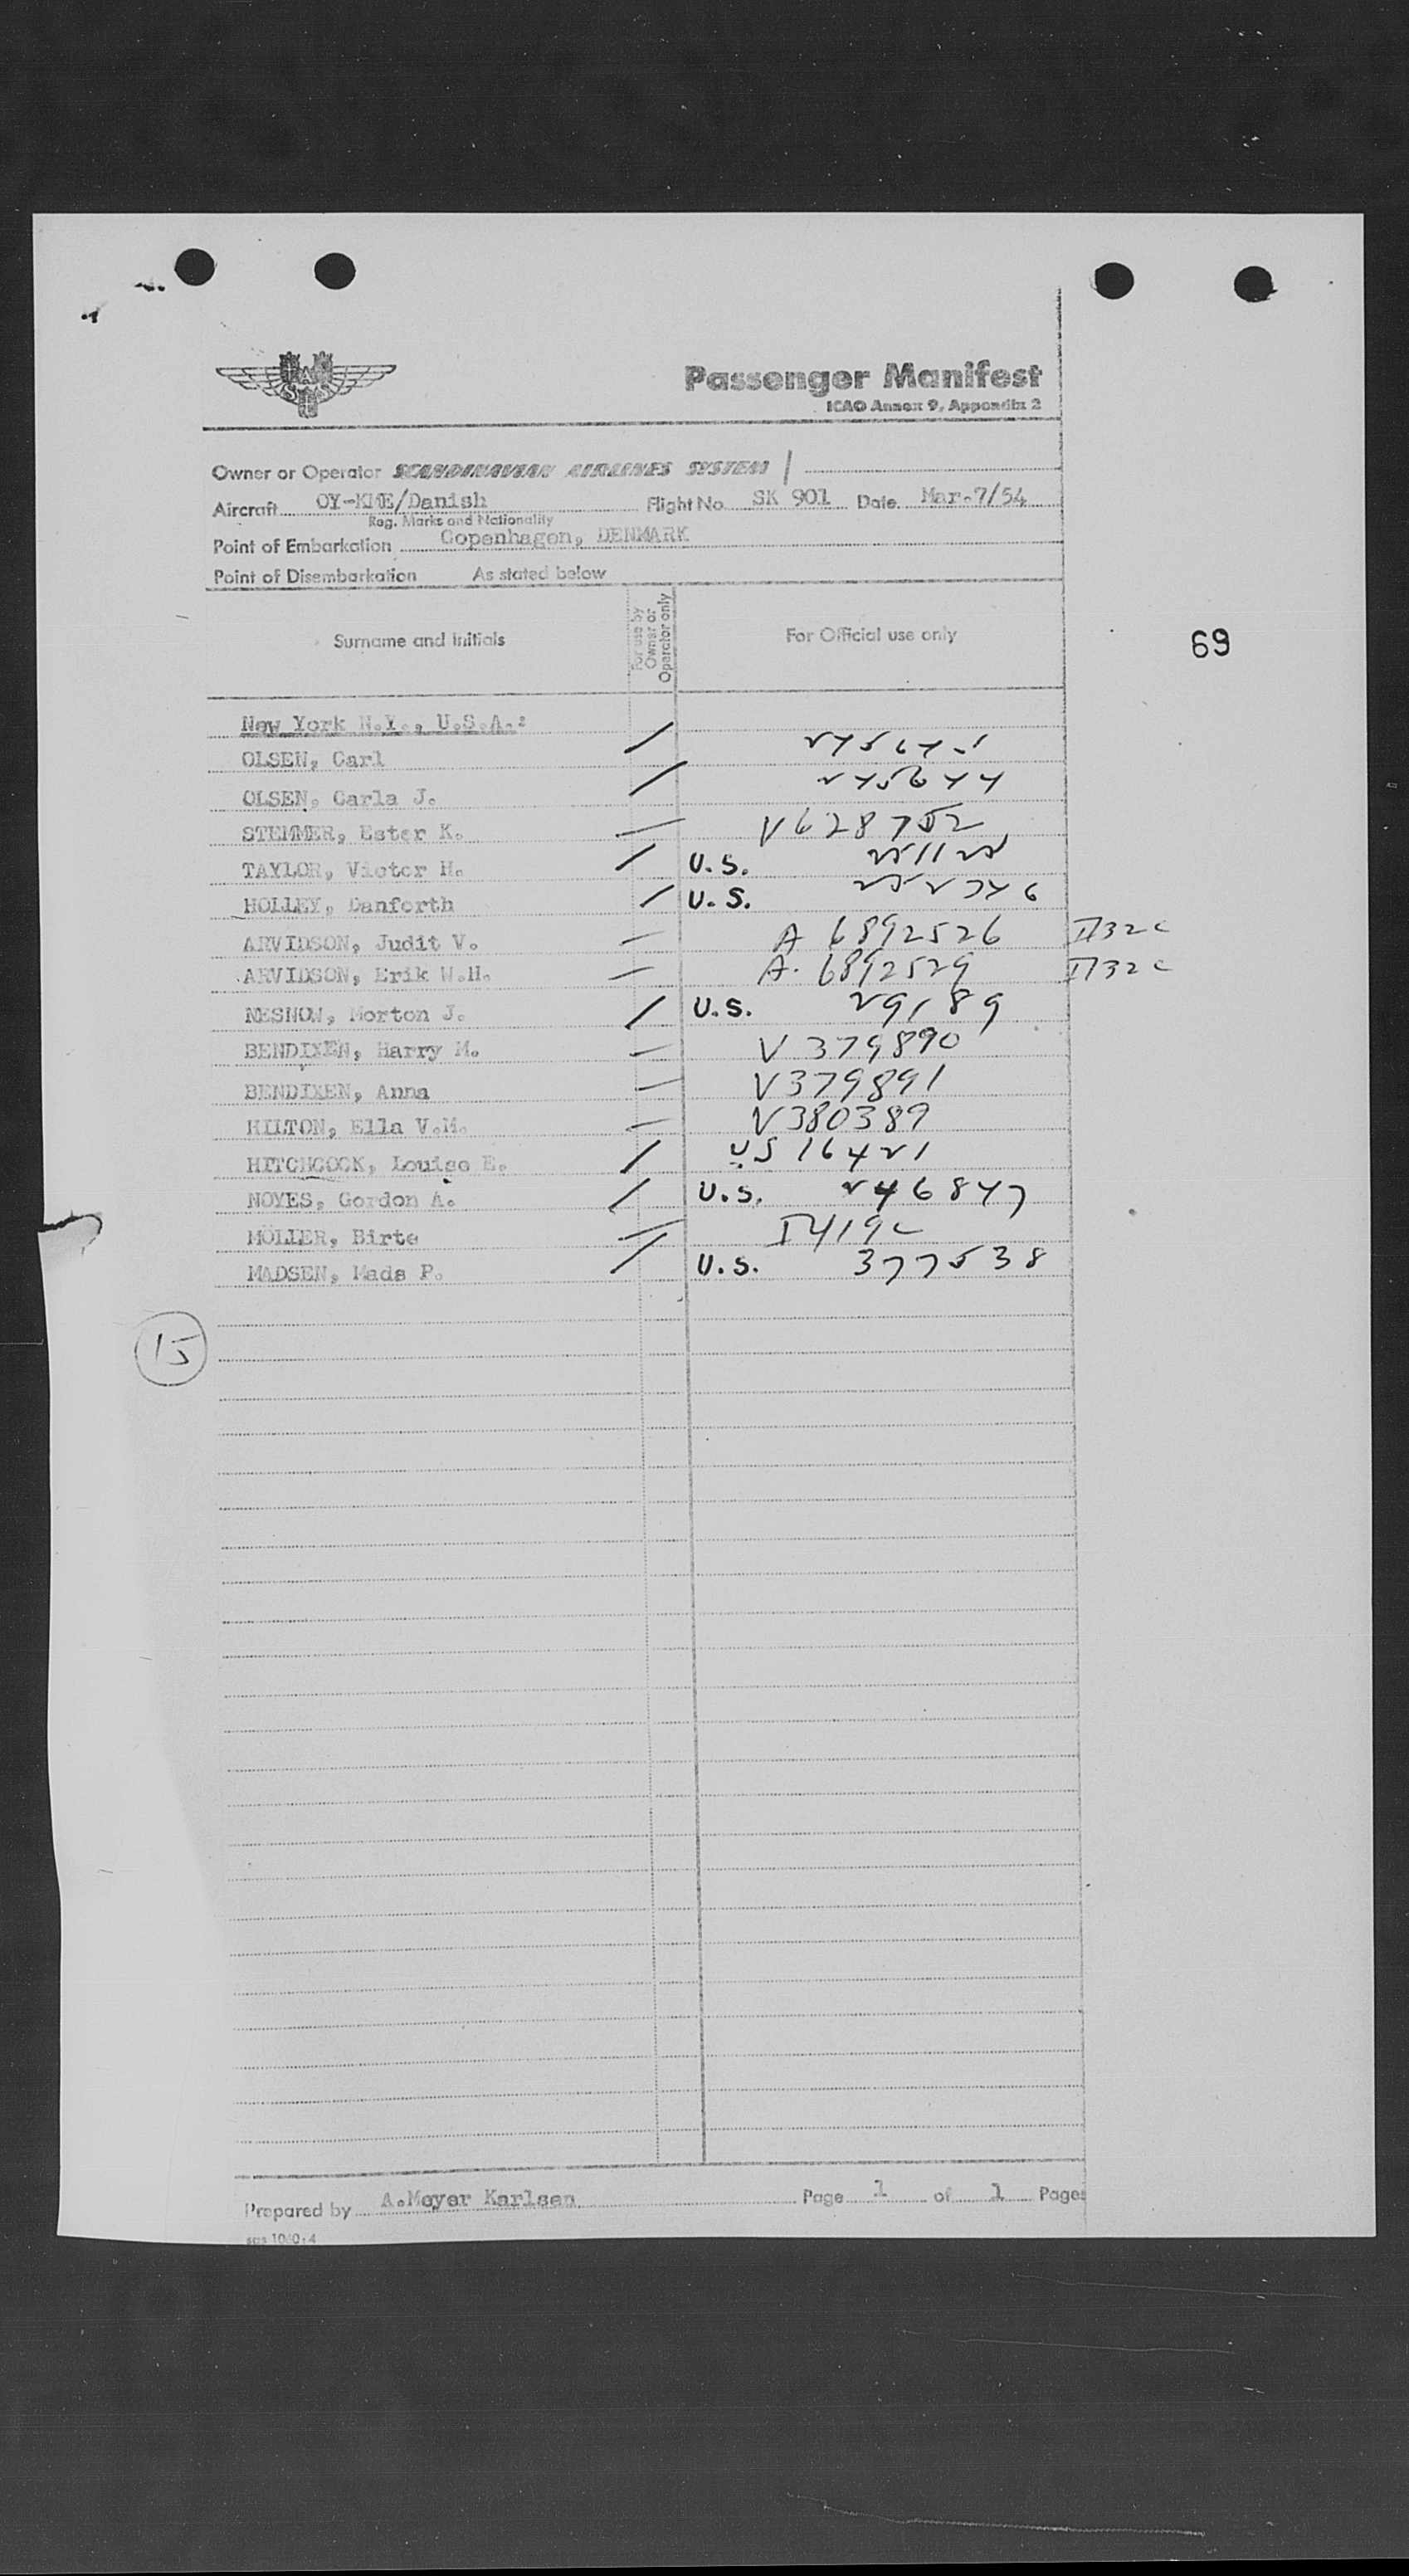 Passenger Manifest
ICAO Annex 9, Appendix 2
Owner or Operator SCANDINAVIAN AIRLINES SYSTEM
Aircraft OY-KME/Danish Flight No. SK 901 Date Mar.7/54
Reg. Marks and Nationality
Point of Embarkation Copenhagen, DENMARK
Point of Disembarkation As stated below
Surname and Initials For use by Owner or Operator only For Official use only
69
New York N.Y., U.S.A.:
OLSEN, Carl
OLSEN, Carla J. 245644
STEMMER, Ester K. V628752
TAYLOR, Victor H. U.S.
HOLLEY, Danforth U.S. 252746
ARVIDSON, Judit V. A 6892526 II32c
ARVIDSON, Erik W.H. A. 6892529 II32c
NESNOW, Morton J. U.S. 29189
BENDIXEN, Harry M. V 379890
BENDIXEN, Anna V379891
HILTON, Ella V.M. V380389
HITCHCOCK, Louise E. US 16421
NOYES, Gordon A. U.S. 246847
MÖLLER, Birte I419c
MADSEN, Mads P. U.S. 377538
15
Prepared by A.Meyer Karlsen Page 1 of 1 Pages
sas 1060-4